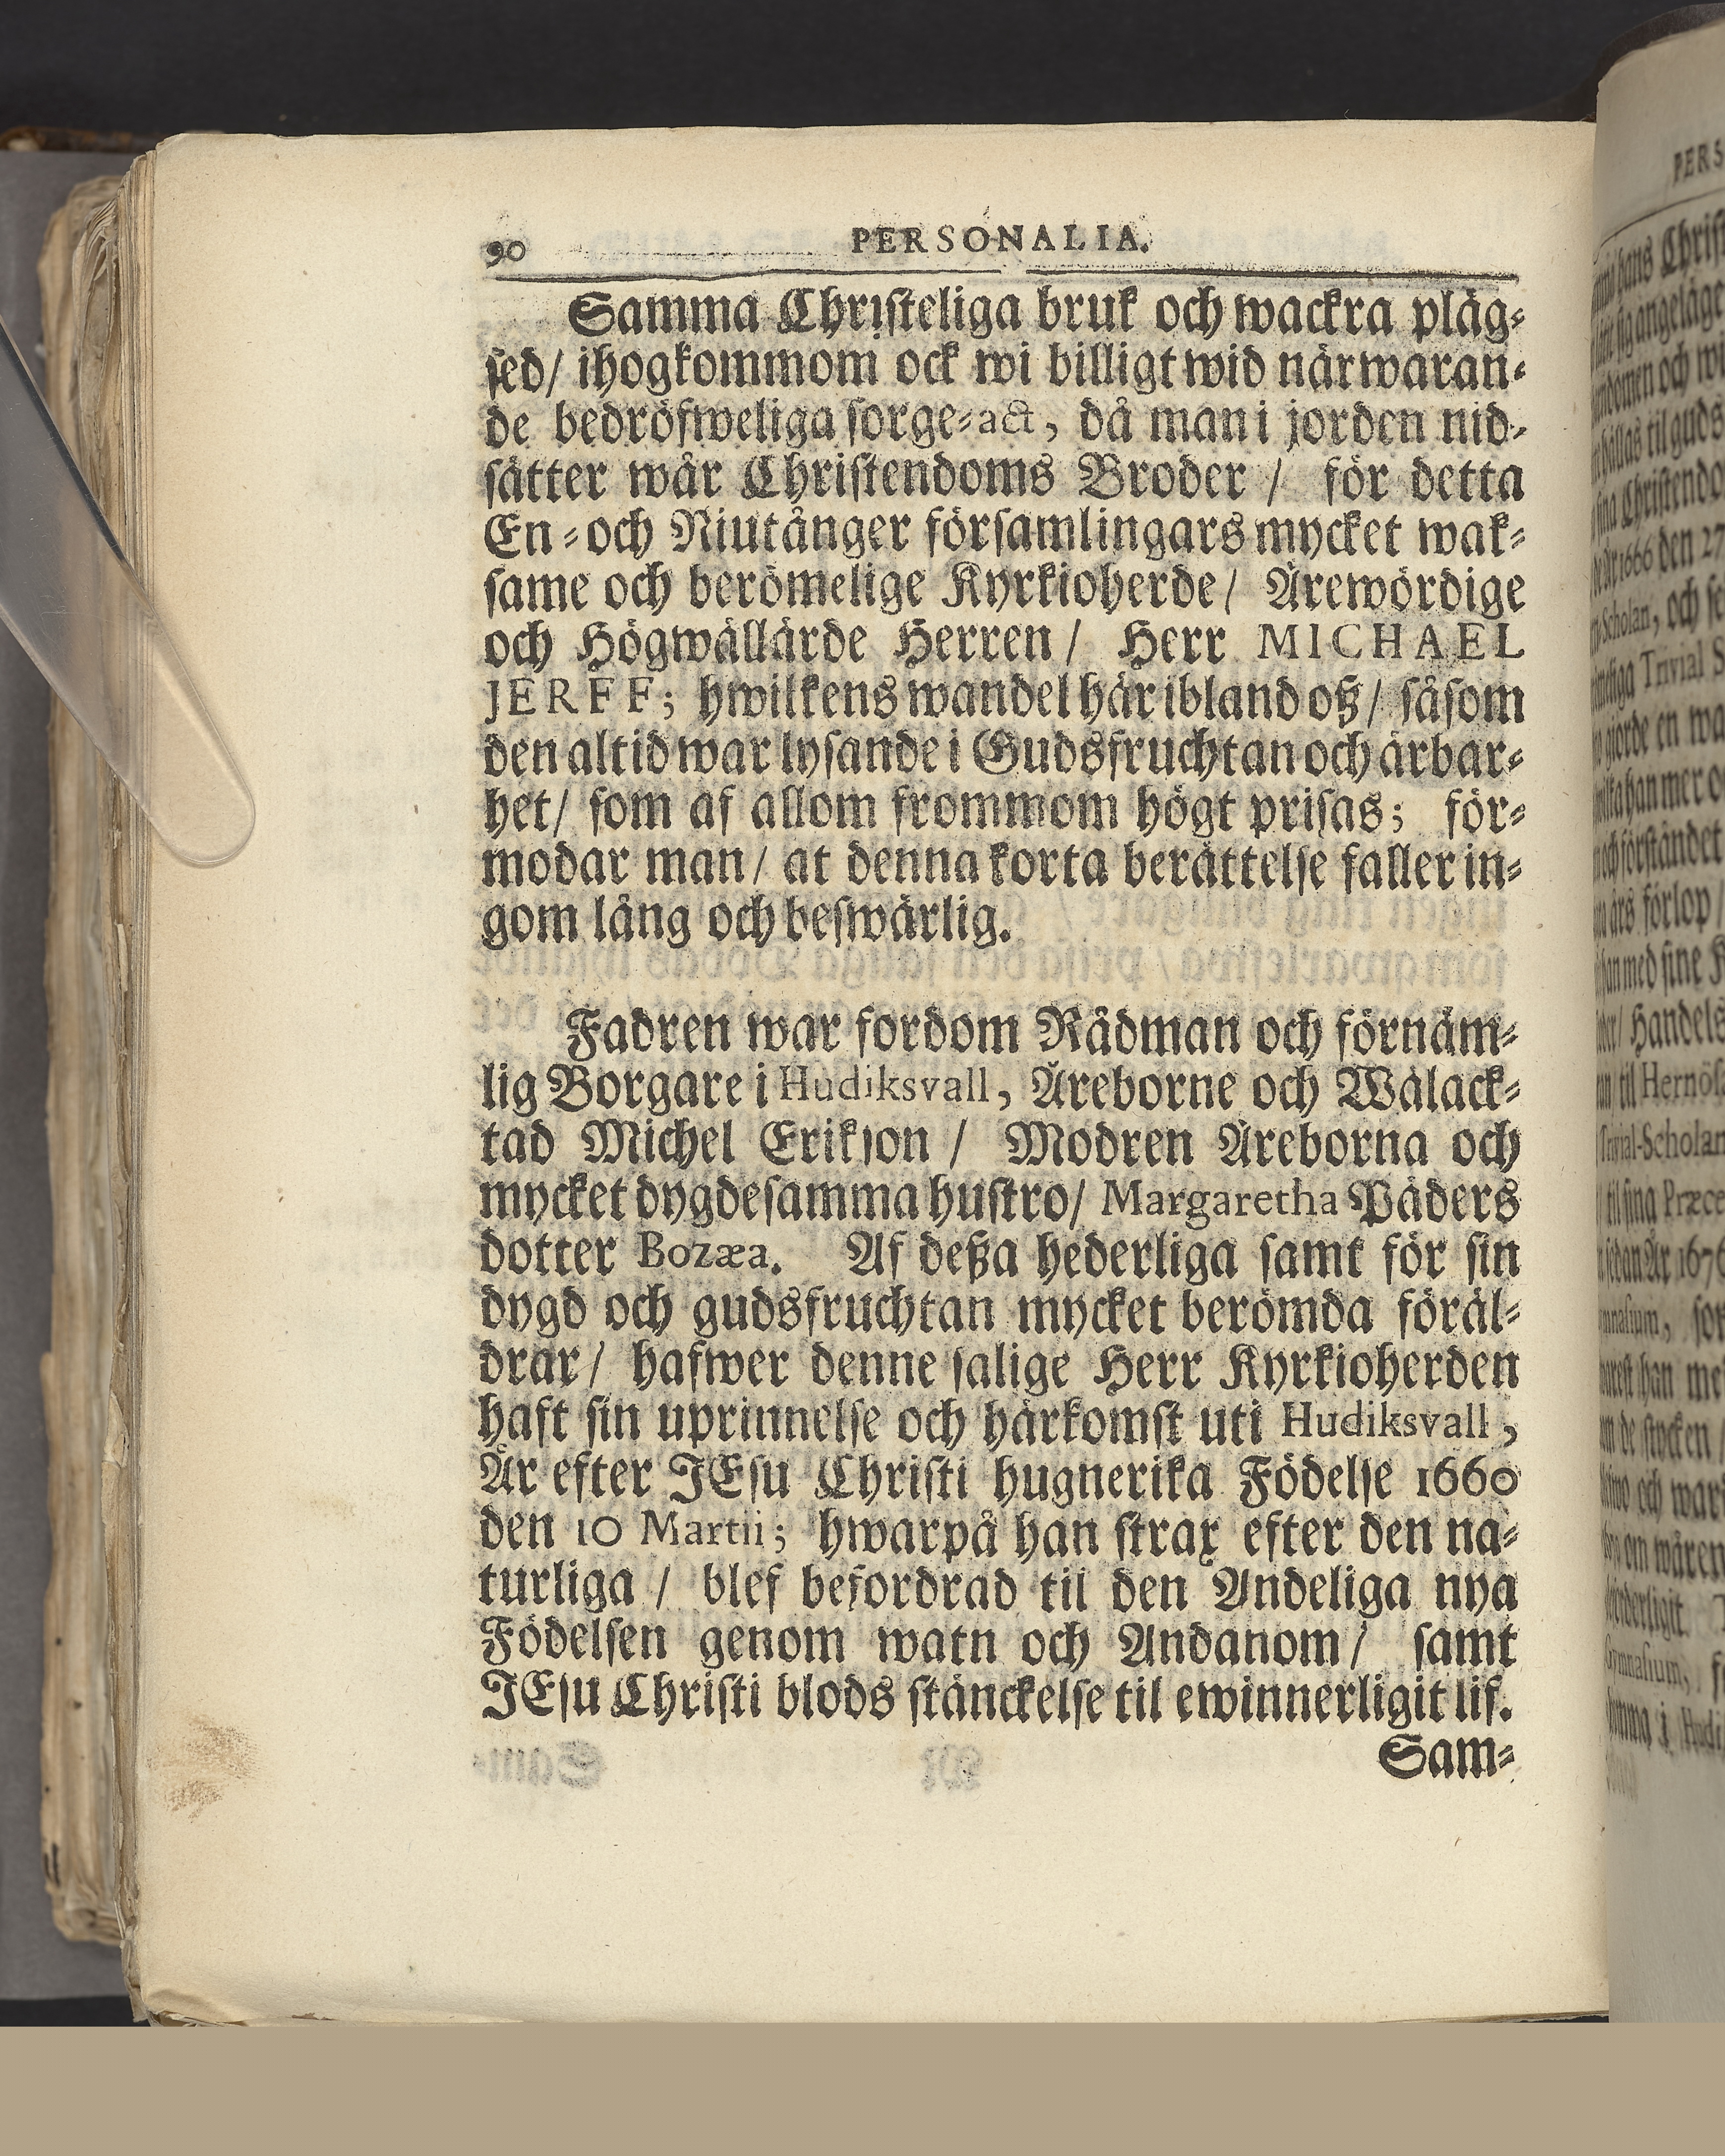 90 PERSONALIA.
Samma Christeliga bruk och wackra pläg-
sed/ ihogkommom ock wi billigt wid närwaran-
de bedröfweliga sorge-act, då man i jorden nid-
sätter wår Christendoms Broder / för detta
En- och Niutånger församlingars mycket wak-
same och berömelige Kyrkioherde/ Ärewördige
och Högwällärde Herren/ Herr MICHAEL
JERFF; hwilkens wandel här ibland oß/ såsom
den altid war lysande i Gudsfruchtan och ärbar-
het/ som af allom frommom högt prisas; för-
modar man/ at denna korta berättelse faller in-
gom lång och beswärlig.
Fadren war fordom Rådman och förnäm-
lig Borgare i Hudiksvall, Äreborne och Wälack-
tad Michel Erikson / Modren Äreborna och
mycket dygdesamma hustro/ Margaretha Päders
dotter Bozæa. Af deßa hederliga samt för sin
dygd och gudsfruchtan mycket berömda föräl-
drar/ hafwer denne salige Herr Kyrkioherden
haft sin uprinnelse och härkomst uti Hudiksvall,
År efter JEsu Christi hugnerika Födelse 1660
den 10 Martii; hwarpå han strax efter den na-
turliga / blef befordrad til den Andeliga nya
Födelsen genom watn och Andanom/ samt
JEsu Christi blods stänckelse til ewinnerligit lif.
Sam-